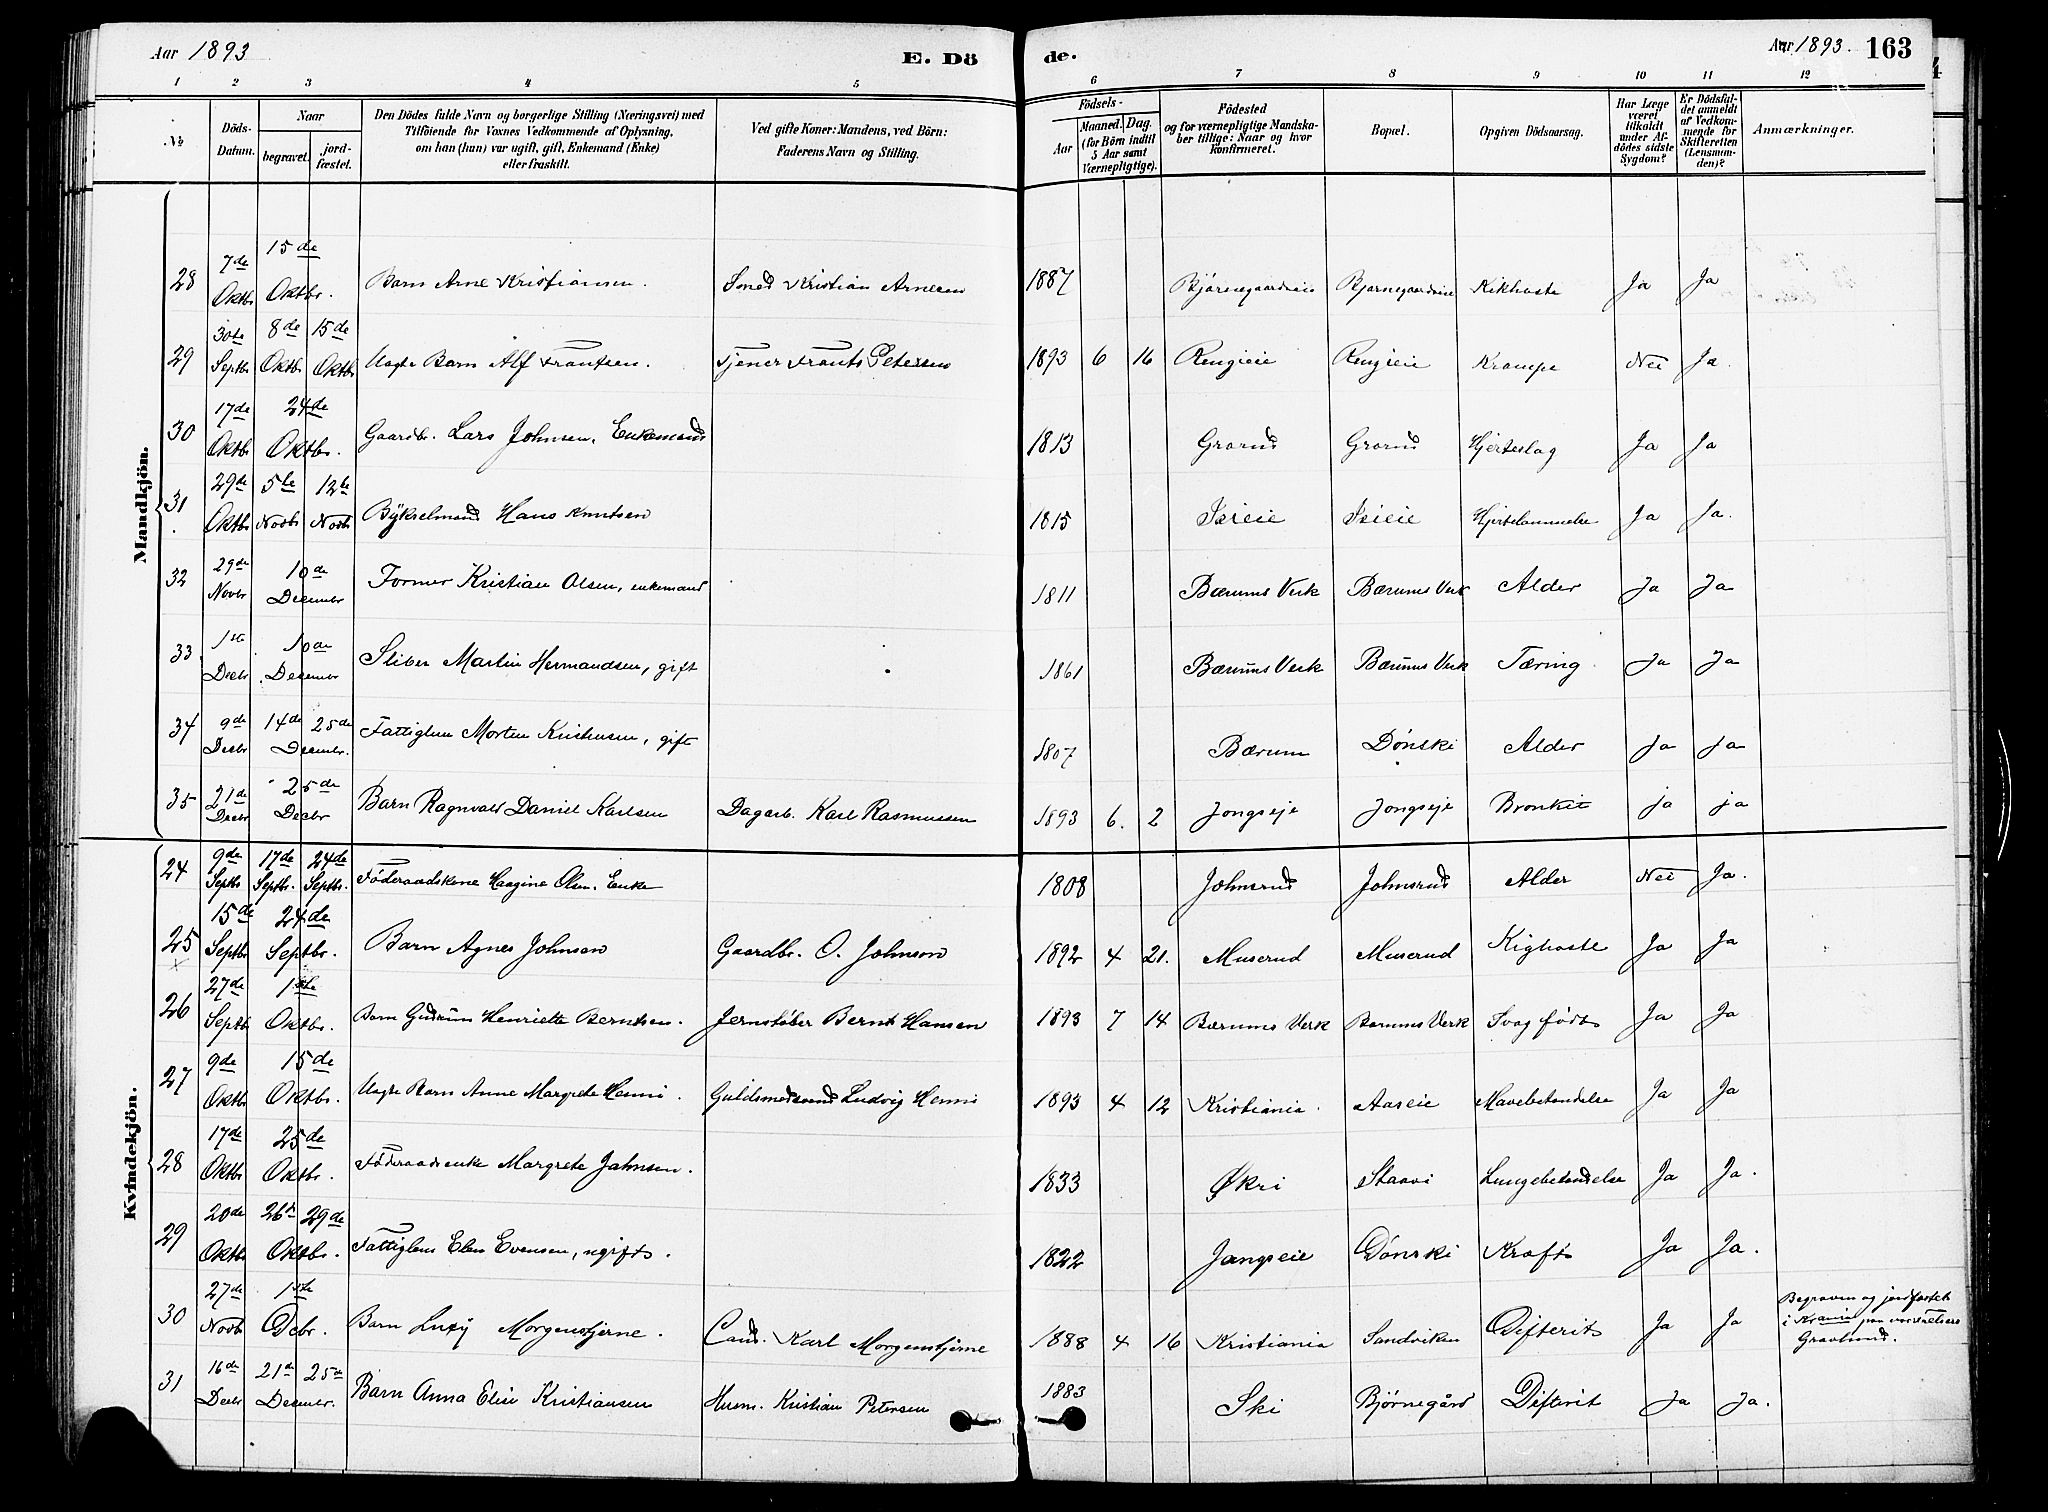 Aar 1893
E. Dö
de.
Aar 1893.
163
1 2 3 4 5 6 7 8 9 10 11 12
No
Döds-Datum.
Naar
begravet.
jordfæstet.
Den Dödes fulde Navn og borgerlige Stilling (Næringsvei) med
Tilföiende for Voxnes Vedkommende af Oplysning,
om han (hun) var ugift, gift, Enkemand (Enke)
eller fraskilt.
Ved gifte Koner: Mandens, ved Börn:
Faderens Navn og Stilling.
Födsels-
Aar
Maaned. Dag.
(for Börn indtil
5 Aar samt
Værnepligtige).
Födested
og for værnepligtige Mandskaber tillige: Naar og hvor
konfirmeret.
Bopæl.
Opgiven Dödsaarsag.
Har Læge
været
tilkaldt
under Afdödes sidste
Sygdom?
Er Dödsfaldet anmeldt
af Vedkommende for
Skifteretten
(Lensmanden)?
Anmærkninger.
Mandkjön.
28 7de Oktbr 15de Oktbr. Barn Arne Kristiansen. Smed Kristian Arnesen 1887 Bjørnegaardveie Bjørnegaardveie Kikhoste Ja Ja
29 30te Septbr 8de Oktbr 15de Oktbr Uægte Barn Alf Frantsen. Tjener Frants Petersen 1893 6 16 Rengieie Rengieie Krampe Nei Ja.
30 17de Oktbr 24de Oktbr. Gaardbr. Lars Johnsen, Enkemand 1813 Grorud Grorud Hjerteslag Ja Ja
31 29de Oktbr 5te Novbr 12te Novbr Hans Knutsen 1815 Isieie Isieie Ja Ja.
32 29de Novbr 10de Decembr Former Kristian Olsen, enkemand 1811 Bærums Verk Bærums Verk Alder Ja Ja
33 1ste Decbr 10de Decembr Sliber Martin Hermandsen, gift 1861 Bærums Verk Bærums Verk Tæring Ja Ja
34 9de Decbr 14de 25de Decembr. Fattiglem Morten Kristensen, gift 1807 Bærum Dønski Alder Ja Ja
35 21de Decbr 25de Decbr Barn Ragnvald Daniel Karlsen Dagarb. Karl Rasmussen 1893 6. 2 Jongseje Jongseje Bronkit ja ja
Kvindekjön.
24 9de Septbr 17de Septbr. 24de Septbr. Föderaadskone Haagine Olsen. Enke 1808 Johnsrud Johnsrud Alder Nei Ja.
25 15de Septbr 24de Septbr. Barn Agnes Johnsen Gaardbr. O. Johnson 1892 4 21. Muserud Muserud Kighoste Ja Ja
26 27de Septbr 1ste Oktbr. Barn Gudrun Henriette Berntsen. Jernstøber Bernt Hansen 1893 7 14 Bærums Verk Bærums Verk Svag født Ja Ja
27 9de Oktbr 15de Oktbr. Uægte Barn Anne Margrete Henni. Guldsmedsvend Ludvig Henni 1893 4 12 Kristiania. Aaseie Mavebetændelse Ja Ja
28 17de Oktbr 25de Oktbr. Föderaadsenke Margrete Jahnsen. 1833 Økri Staavi Lungebetændelse Ja Ja.
29 20de Oktbr 26de 29de Oktbr. Fattiglem Elen Evensen, ugift. 1822 Jongseie Dønski Kræft Ja Ja.
30 27de Novbr 1ste Dcbr. Barn Morgenstjerne. Cand. Karl Morgenstjerne 1888 4 16 Kristiania Sandviken Difterit Ja Ja Begraven og jordfæstet
i Krania paa vor Frelsers
Gravlund.
31 16de Decbr 21de 25de Decembr. Barn Anna Elise Kristiansen Husm. Kristian Petersen 1883 Ski Bjørnegård Difterit Ja Ja.